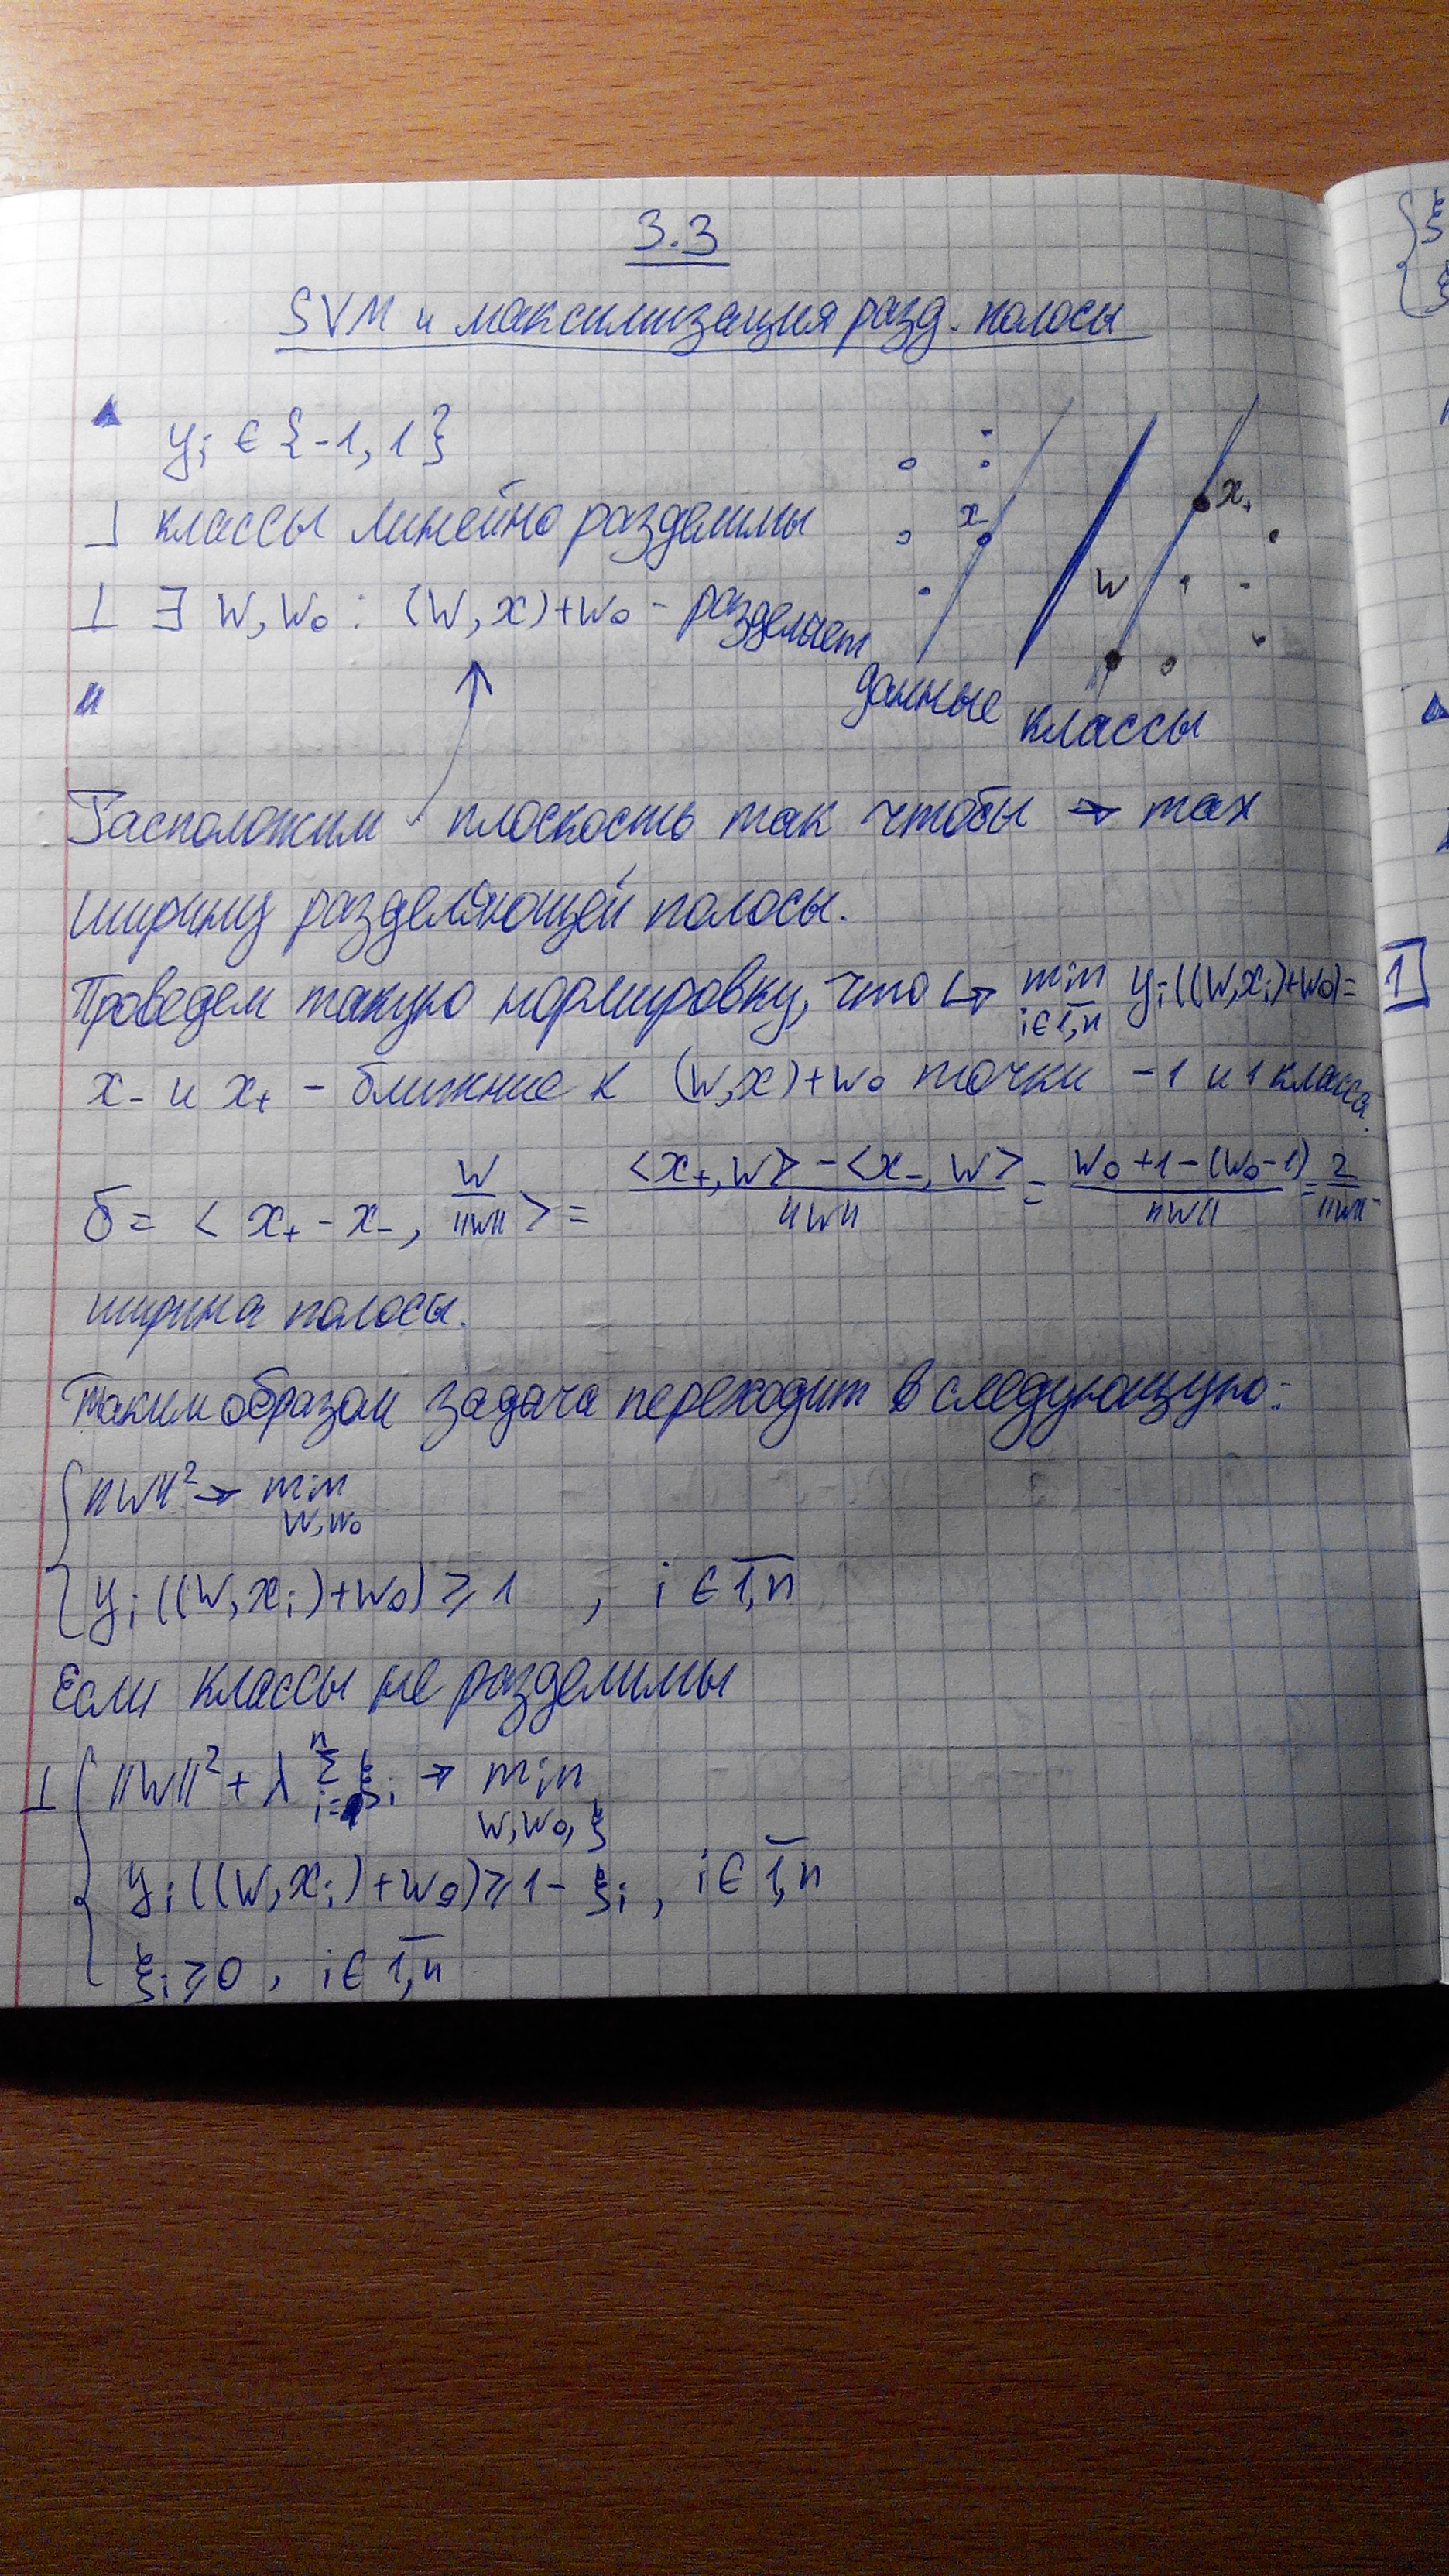 3.3
SVM и максимизация разд. полосы
y_i ∈ {-1, 1}
⊥ классы линейно разделимы
⊥ ∃ w, w_0 : (w, x) + w_0 - разделяет
данные классы
x_-
x_+
w
Расположим плоскость так чтобы → max
ширину разделяющей полосы.
Проведем такую нормировку, что ↪ min_{i∈\overline{1,n}} y_i((w, x_i) + w_0) = 1
x_- и x_+ - ближние к (w, x) + w_0 точки -1 и 1 класса.
δ = < x_+ - x_-, w/||w|| > = (<x_+, w> - <x_-, w>)/||w|| = (w_0 + 1 - (w_0 - 1))/||w|| = 2/||w|| -
ширина полосы.
Таким образом задача переходит в следующую:
{ ||w||² → min_{w, w_0}
y_i((w, x_i) + w_0) ≥ 1 , i ∈ \overline{1,n}
Если классы не разделимы
⊥ { ||w||² + λ Σ_{i=1}^{n} ξ_i → min_{w, w_0, ξ}
y_i((w, x_i) + w_0) ≥ 1 - ξ_i , i ∈ \overline{1,n}
ξ_i ≥ 0 , i ∈ \overline{1,n}